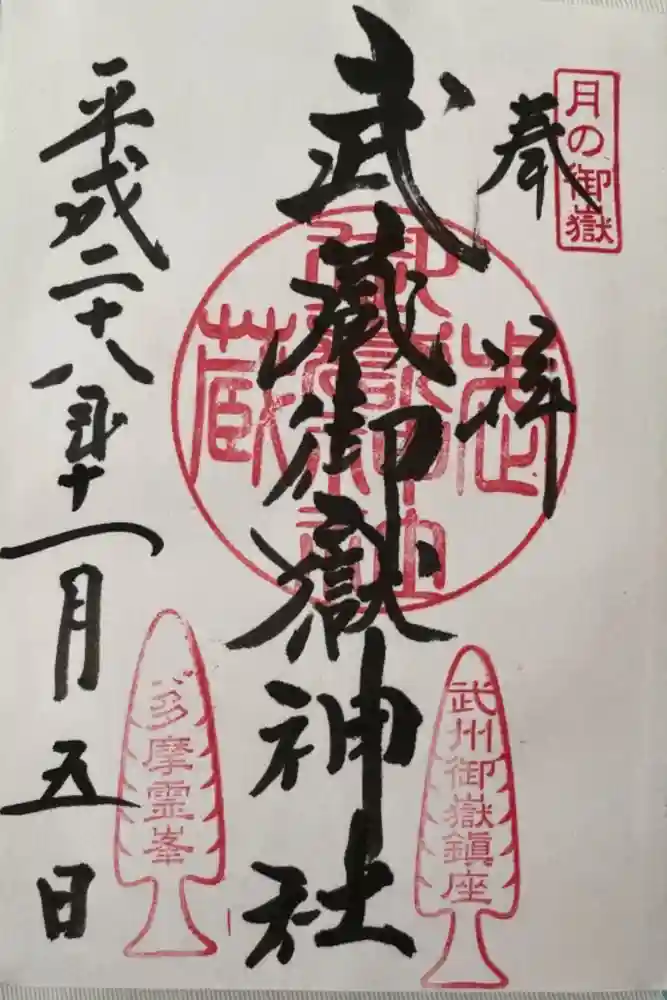 月の御嶽
奉拝
武蔵御嶽神社
武蔵御嶽神社
武州御嶽鎮座
平成二十八年十一月五日
多摩霊峯